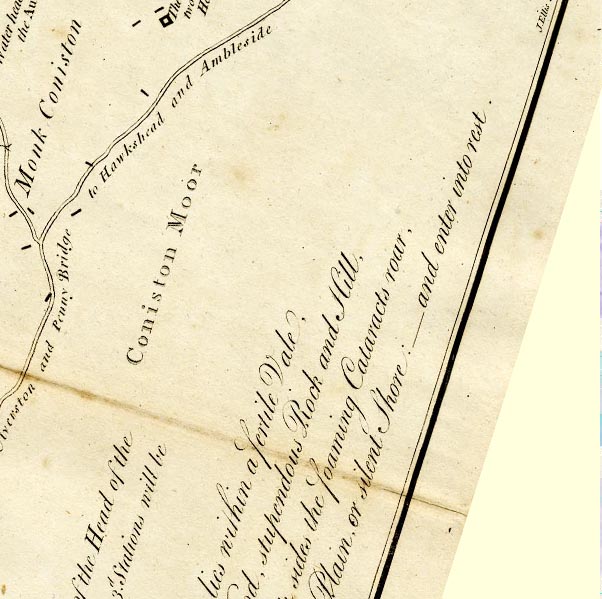 the
Monk Coniston
to Hawkshead and Ambleside
and Penny Bridge
Coniston Moor
of the Head of the
3.d Stations will be
lies within a fertile Vale,
stupendous Rock and Hill,
sides the foaming Cataracts roar,
Plain, or silent Shore; — and enter into rest.